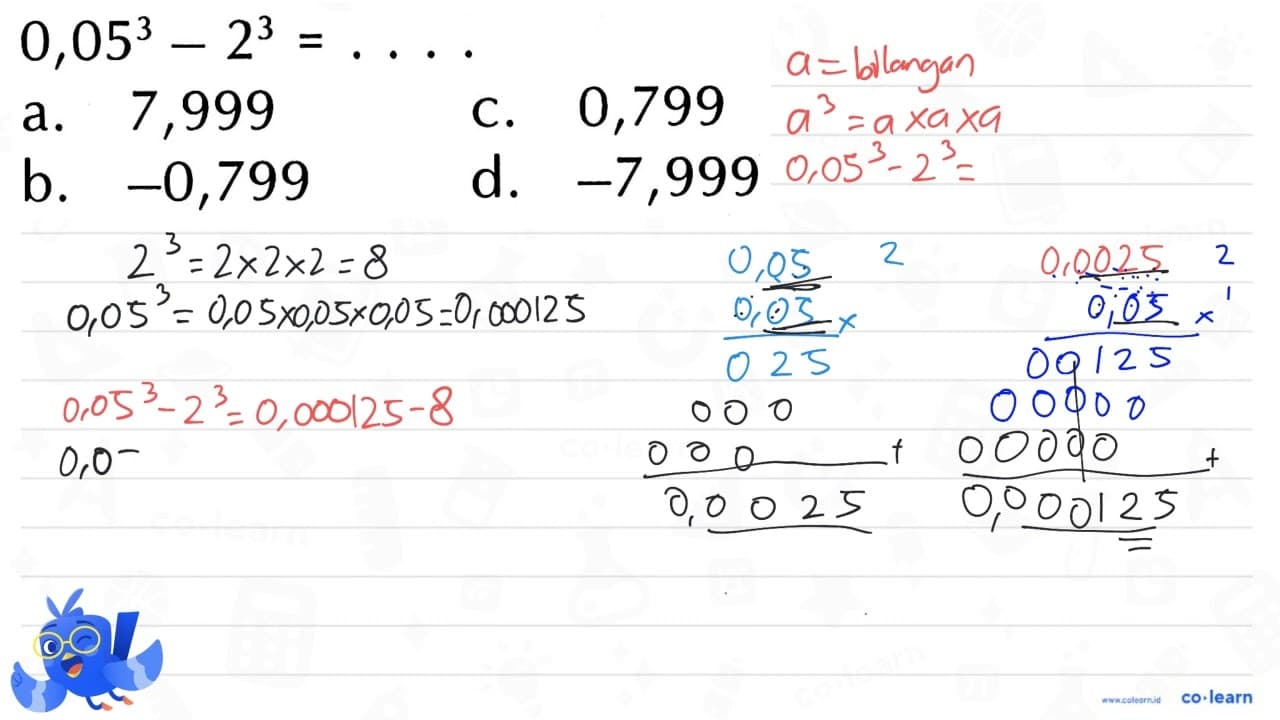 0,05³ – 2³ = . . . .
a. 7,999 c. 0,799
b. –0,799 d. –7,999
a = bilangan
a³ = a x a x a
0,05³ - 2³ =
2³ = 2 x 2 x 2 = 8
0,05³ = 0,05 x 0,05 x 0,05 = 0,000125
0,05³ - 2³ = 0,000125 - 8
0,0
0,05 2
0,05 x
0 2 5
0 0 0
0 0 0 +
0,0 0 2 5
0,0025 2
0,05 x 1
00125
00000
00000 +
0,000125
co·learn
www.colearn.id co·learn